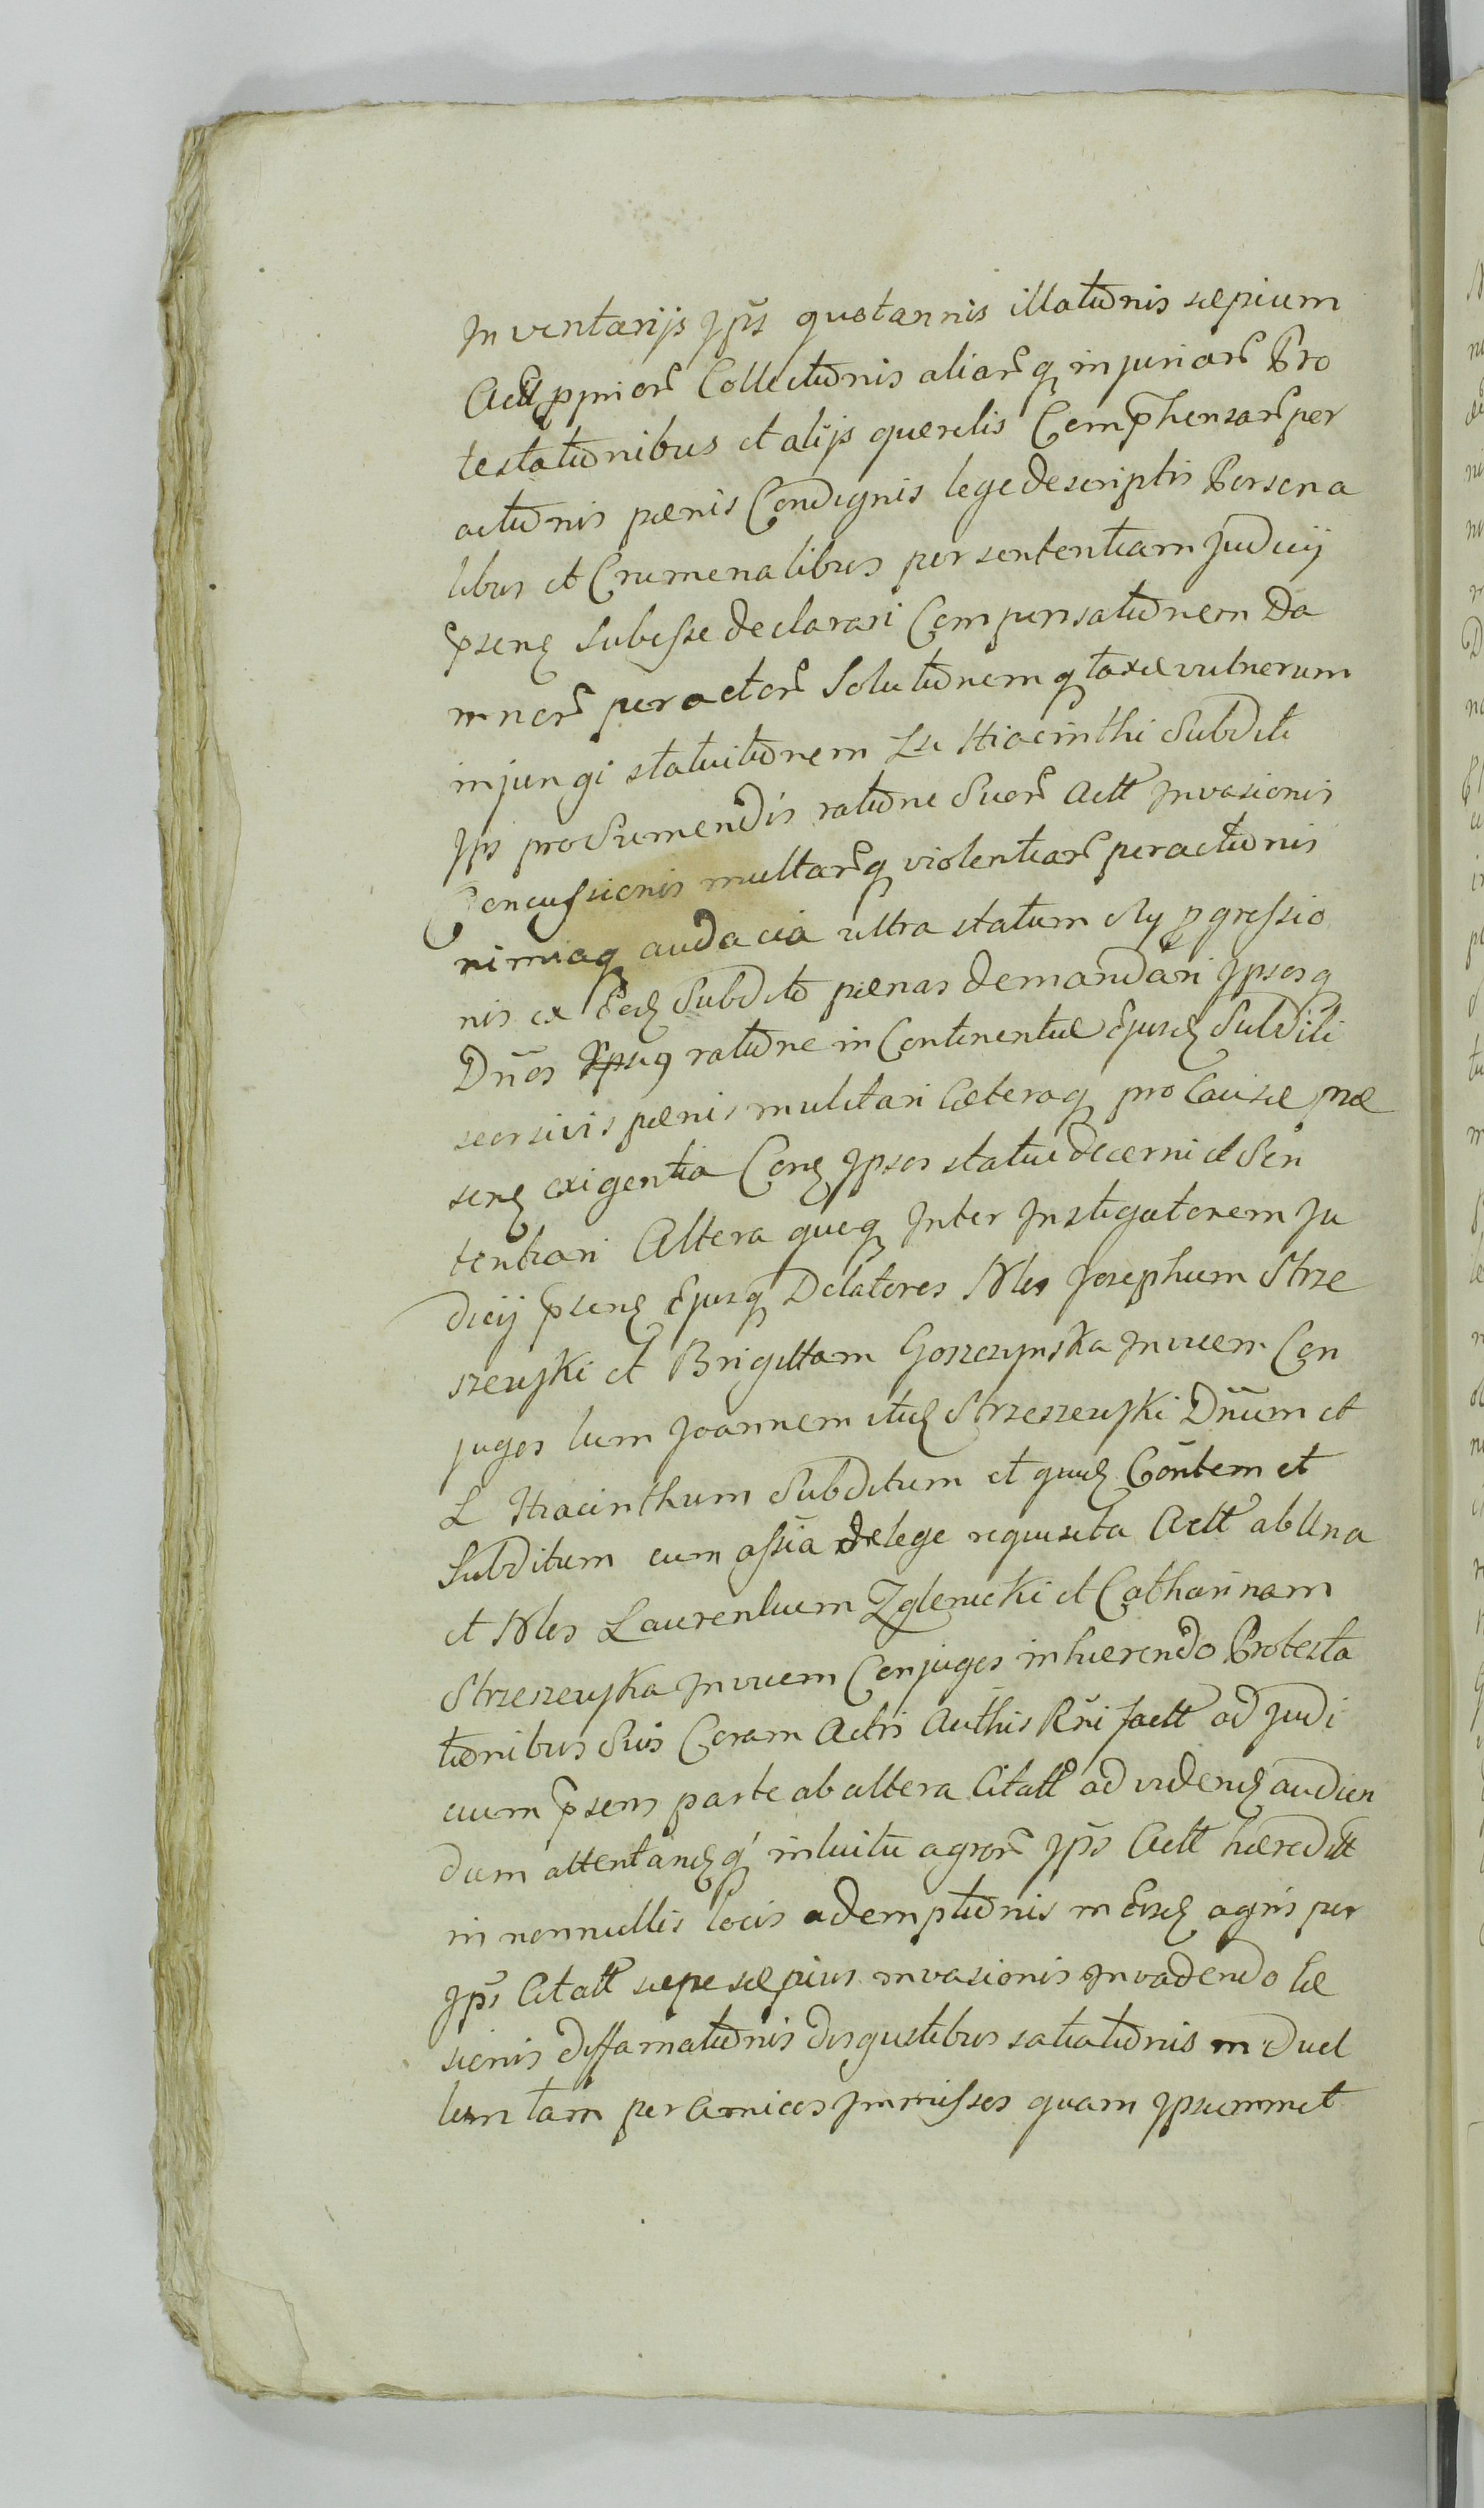 Inventarijs Jps quotannis illationis sæpium
Actt ppriorũ Collectionis aliarũq injuriarũ Pro
testationibus et alijs querelis Comp̃hensarũ per
actionis pænis Condignis lege descriptis Persona
libus et Crumenalibus per sententiam Judicij
p̃senę Subesse declarari Compensationem Da
mnorũ peractorũ Solutionemq taxæ vulnerum
injungi statuitionem Hiacinthi Subditi
Jps pro Sumendis ratione Suorũ Actt Invasionis
Concussionis multarũq violentiarũ peractionis
nimiaq audacia ultra statum pgressio
nis ex Eodę Subdito pænas demandari Ipsosq
Dños ratione in Continentiæ Ejusdę Subditi
seorsivis pænis mulctari Cæteraq pro Causæ præ
senę exigentia Conę Ipsos statui decerni et Sen
tentiari Altera quoq Inter Instigatorem Ju
dicij p̃senę Ejusq Delatores Nles Josephum Strze
szewski et Brigittam Goszczynska Invicem Con
juges tum Joannem itidę Strzeszewski Dñum et
L Hiacinthum Subditum et quidę Cõntem et
Subditum cum assia de lege requisita Actt ab Una
et Nles Laurentium Zglenicki et Catharinam
Strzeszewska Invicem Conjuges inhærendo Protesta
tionibus Suis Coram Actis Authis Rñi factt ad Judi
cium p̃sens parte ab altera Citatt ad videnę audien
dum attentandęq intuitu agrorũ Jps Actt hæreditt
in nonnullis locis ademptionis in Eisdę agris per
Jps Citatt sæpe sæpius invasionis Invadendo læ
sionis diffamationis disgustibus satiationis in Duel
lum tam per Amicos Immissos quam Ipsummet